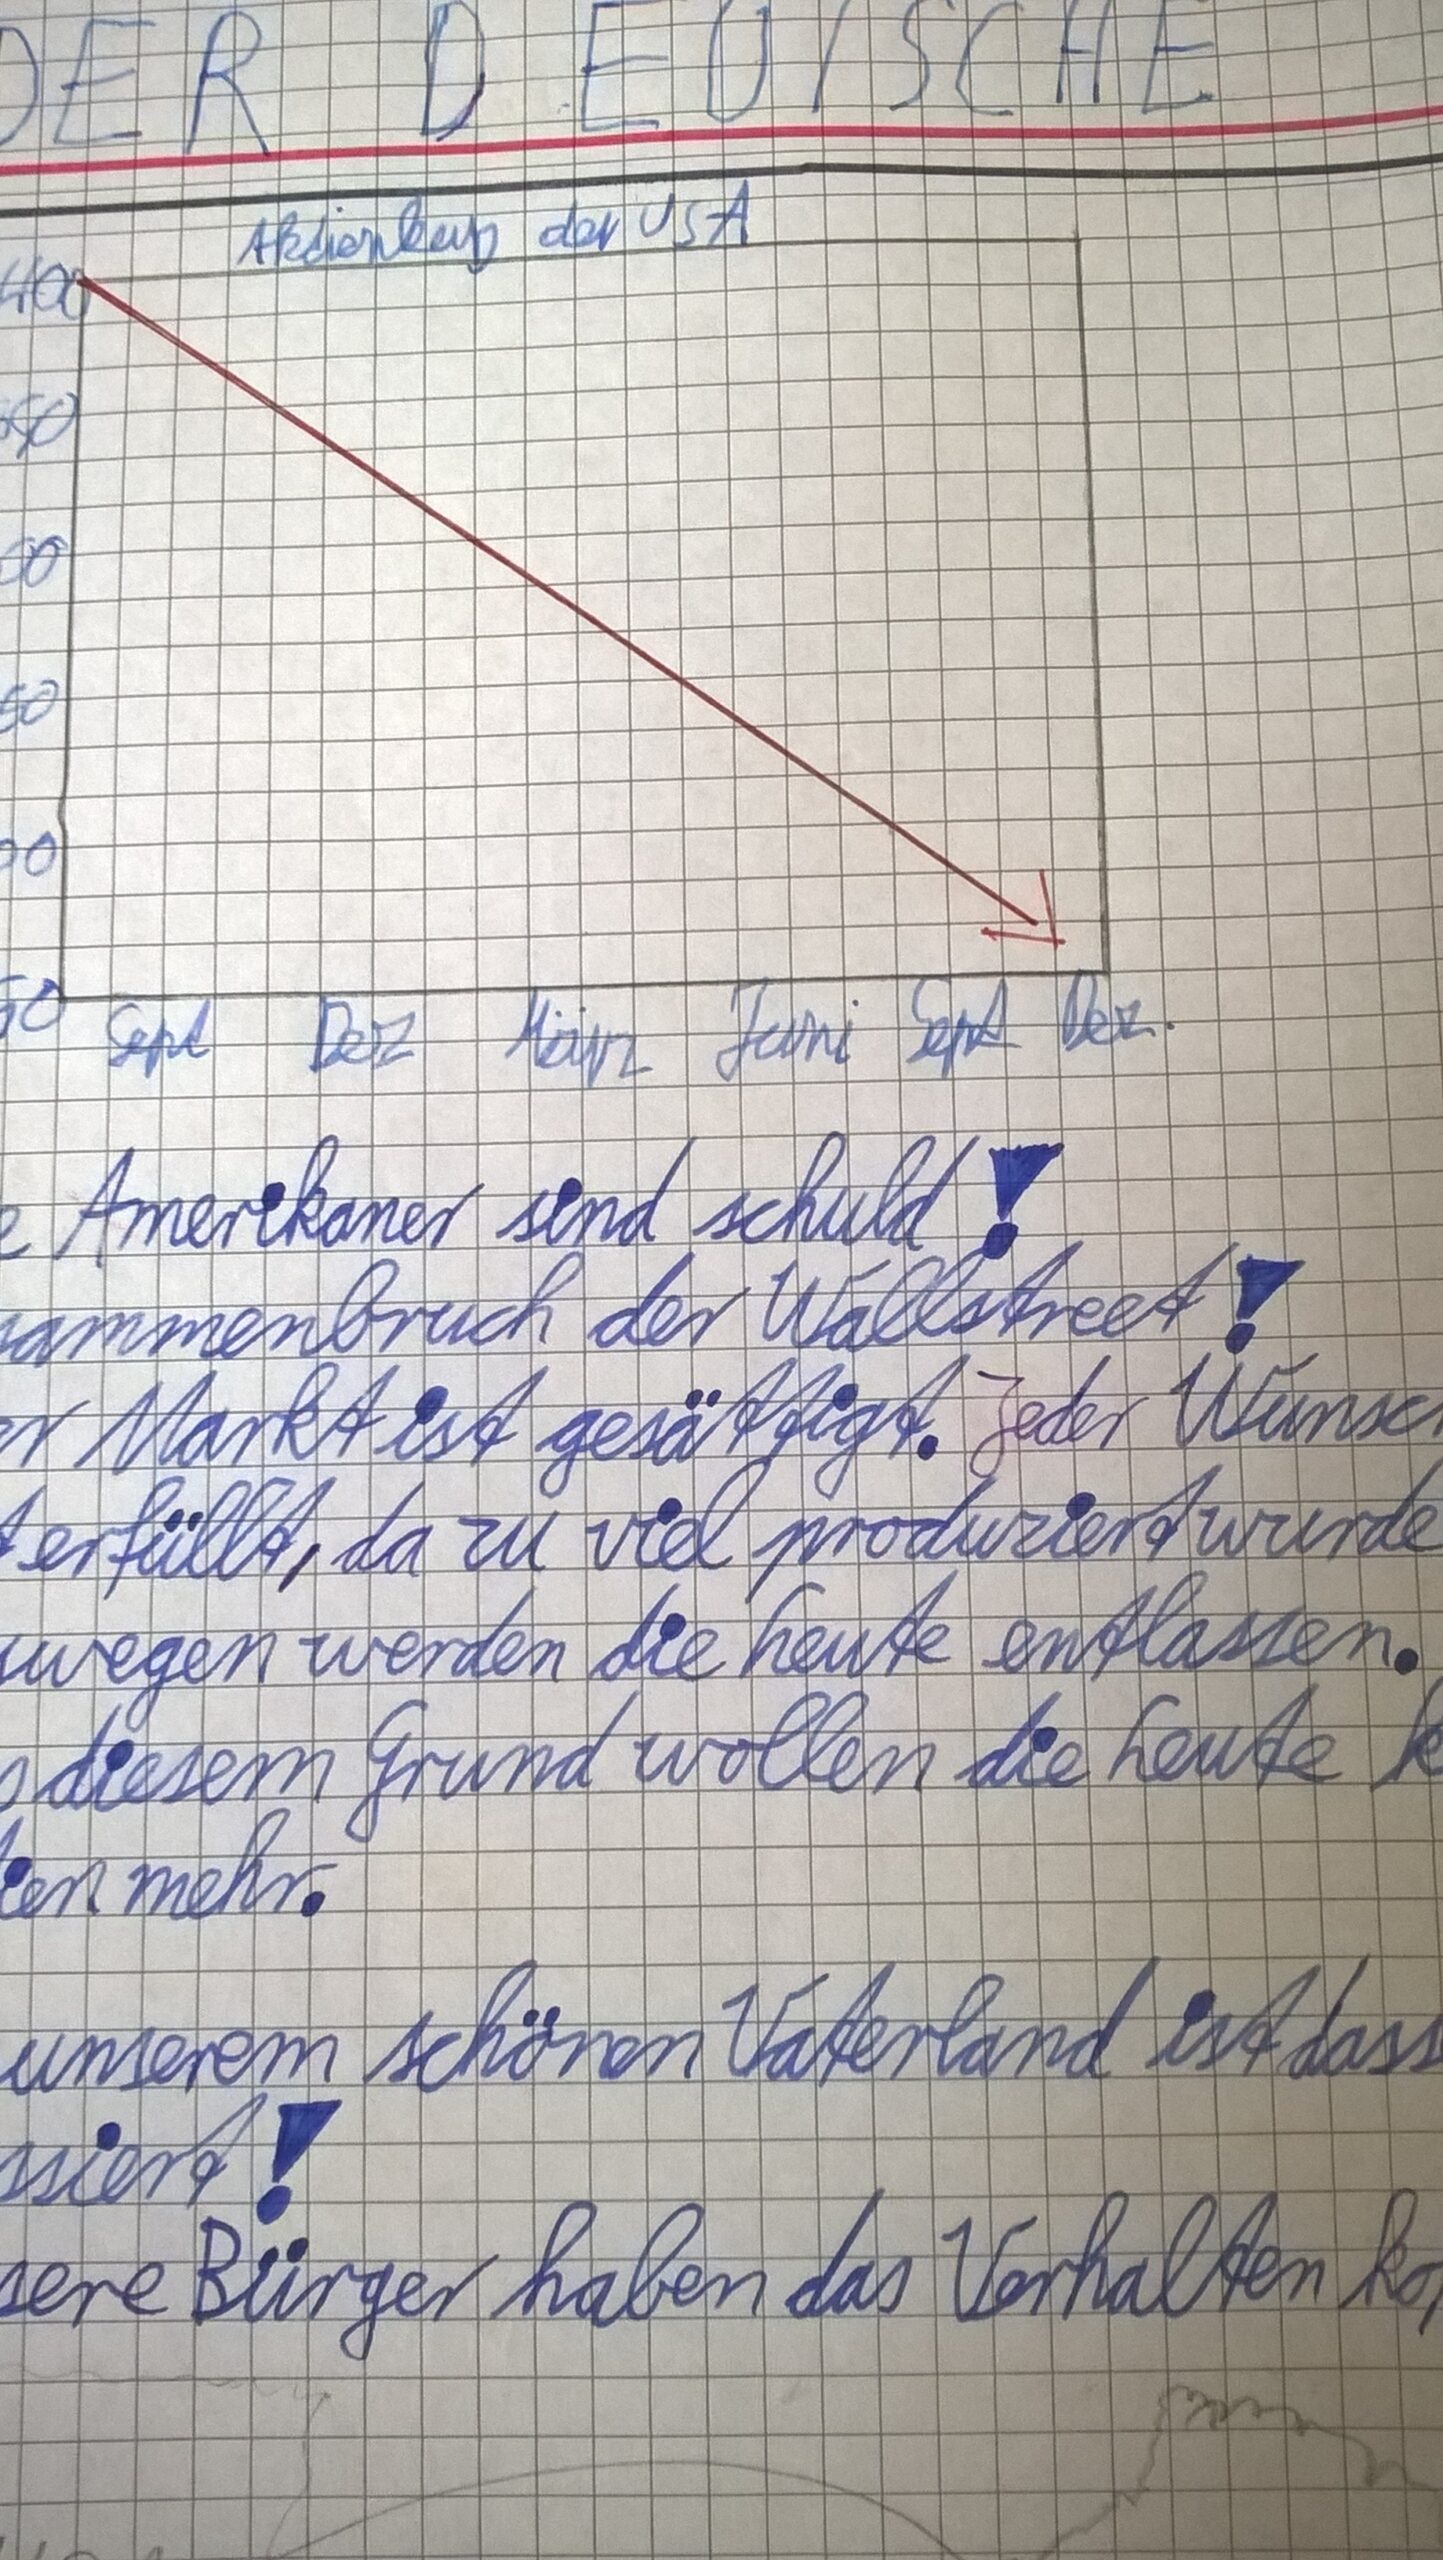 DER DEUTSCHE
der USA
400
Sept Dez März Juni Sept Dez.
Amerikaner sind schuld!
sammenbruch der Wallstreet!
er Markt ist gesättigt. Jeder Wunsch
t erfüllt, da zu viel produziert wurde
swegen werden die heute entlassen.
s diesem Grund wollen die heute k
ien mehr.
unserem schönen Vaterland ist dass
ssiert!
sere Bürger haben das Verhalten ko